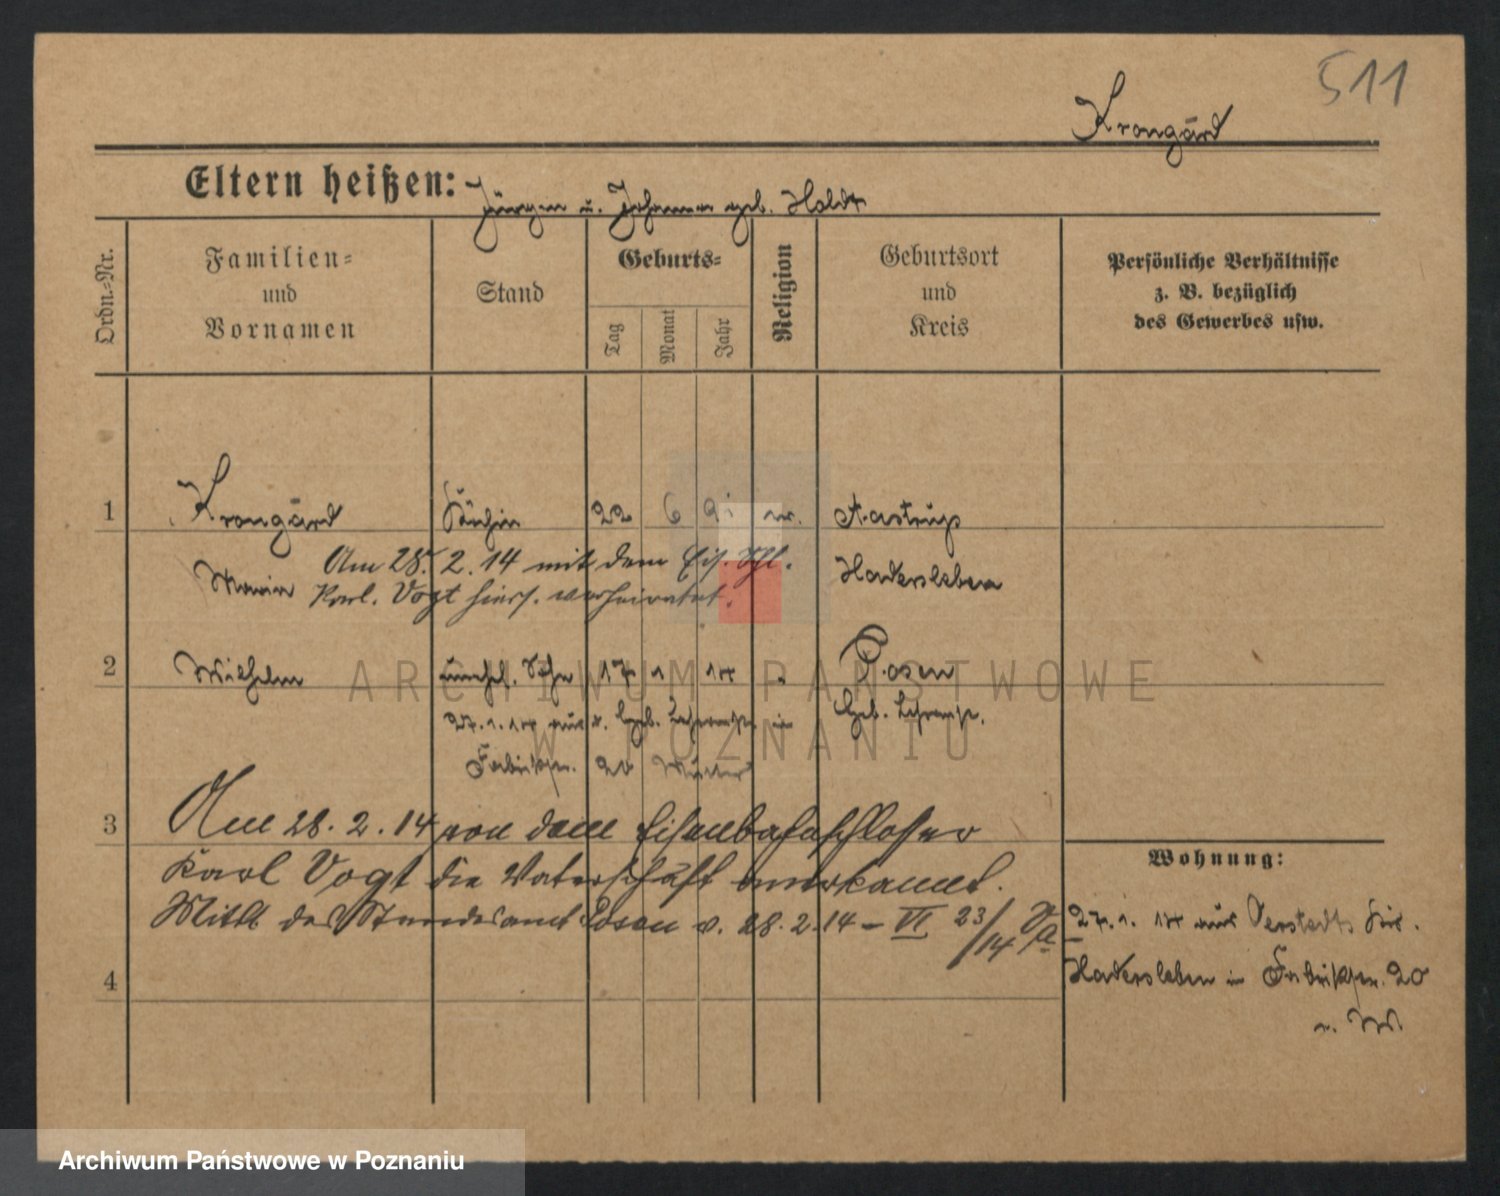 511
Krongärd
Eltern heißen: Jürgen u. Johanna geb. Holdt
Ordn.-Nr.
Familien-
und
Vornamen
Stand
Geburts-
Tag
Monat
Jahr
Religion
Geburtsort
und
Kreis
Persönliche Verhältnisse
z. B. bezüglich
des Gewerbes usw.
1 Krongärd Köchin 22 6 91 ev. Aastrup
Am 28. 2. 14 mit dem Eis. Schl.
Marie Karl Vogt hiers. verheiratet. Hadersleben
2 Wilhelm unehel. Sohn 17 1 14 " Posen
27. 1. 14 aus
Fabrikstr. 20 Mutter
3 Am 28. 2. 14 von dem Eisenbahnschlosser
Karl Vogt die Vaterschaft anerkannt.
Mittl des Standesamt Posen v. 28. 2. 14 – VI 23/14
4
Wohnung:
27. 1. 14 aus Oerstedt Kr.
Hadersleben in Fabrikstr. 20
ARCHIWUM PAŃSTWOWE
W POZNANIU
Archiwum Państwowe w Poznaniu